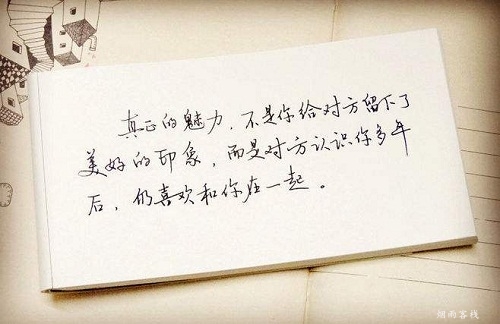 真正的魅力，不是你给对方留下了
美好的印象，而是对方认识你多年
后，仍喜欢和你在一起。
烟雨客栈